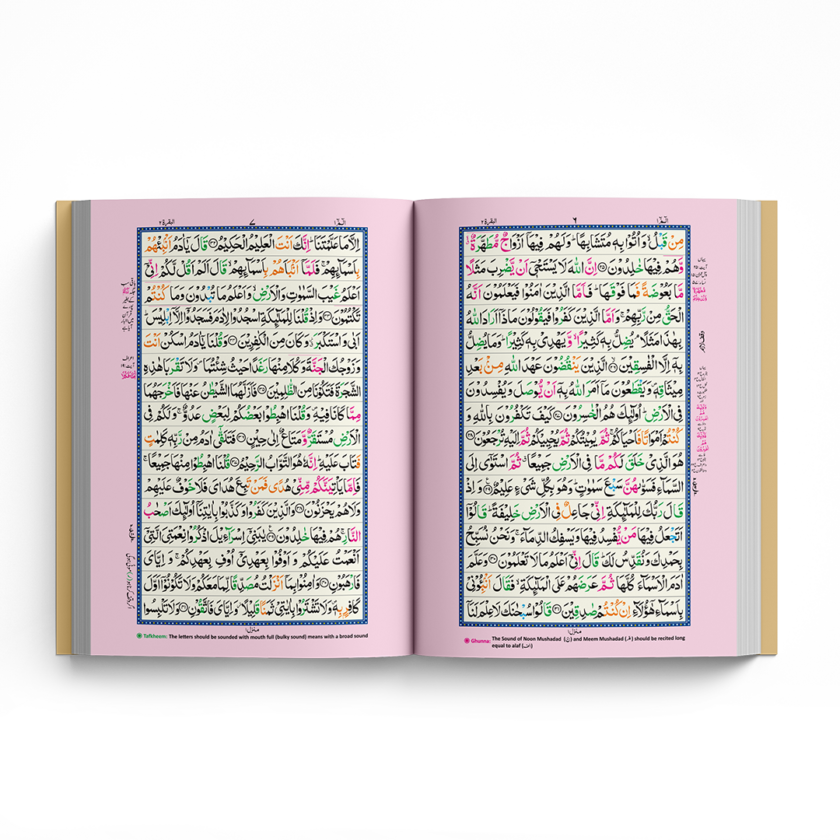 الٓمّٓ ١ ٦ البقرة ٢
مِنْ قَبْلُ ۙ وَاُتُوْا بِهٖ مُتَشَابِهًا ؕ وَلَهُمْ فِيْهَاۤ اَزْوَاجٌ مُّطَهَّرَةٌ ۙ
وَّهُمْ فِيْهَا خٰلِدُوْنَ ﴿۲۵﴾ اِنَّ اللّٰهَ لَا يَسْتَحْىٖۤ اَنْ يَّضْرِبَ مَثَلًا
مَّا بَعُوْضَةً فَمَا فَوْقَهَا ؕ فَاَمَّا الَّذِيْنَ اٰمَنُوْا فَيَعْلَمُوْنَ اَنَّهُ
الْحَقُّ مِنْ رَّبِّهِمْ ۚ وَاَمَّا الَّذِيْنَ كَفَرُوْا فَيَقُوْلُوْنَ مَاذَاۤ اَرَادَ اللّٰهُ
بِهٰذَا مَثَلًا ۘ يُضِلُّ بِهٖ كَثِيْرًا ۙ وَّيَهْدِىْ بِهٖ كَثِيْرًا ؕ وَمَا يُضِلُّ
بِهٖۤ اِلَّا الْفٰسِقِيْنَ ﴿۲۶﴾ الَّذِيْنَ يَنْقُضُوْنَ عَهْدَ اللّٰهِ مِنْۢ بَعْدِ
مِيْثَاقِهٖ ۪ وَيَقْطَعُوْنَ مَاۤ اَمَرَ اللّٰهُ بِهٖۤ اَنْ يُّوْصَلَ وَيُفْسِدُوْنَ
فِى الْاَرْضِ ؕ اُولٰٓئِكَ هُمُ الْخٰسِرُوْنَ ﴿۲۷﴾ كَيْفَ تَكْفُرُوْنَ بِاللّٰهِ وَ
كُنْتُمْ اَمْوَاتًا فَاَحْيَاكُمْ ۚ ثُمَّ يُمِيْتُكُمْ ثُمَّ يُحْيِيْكُمْ ثُمَّ اِلَيْهِ تُرْجَعُوْنَ ﴿۲۸﴾
هُوَ الَّذِىْ خَلَقَ لَكُمْ مَّا فِى الْاَرْضِ جَمِيْعًا ٭ ثُمَّ اسْتَوٰۤى اِلَى
السَّمَآءِ فَسَوّٰىهُنَّ سَبْعَ سَمٰوٰتٍ ؕ وَهُوَ بِكُلِّ شَىْءٍ عَلِيْمٌ ﴿۲۹﴾ وَ اِذْ
قَالَ رَبُّكَ لِلْمَلٰٓئِكَةِ اِنِّىْ جَاعِلٌ فِى الْاَرْضِ خَلِيْفَةً ؕ قَالُوْۤا
اَتَجْعَلُ فِيْهَا مَنْ يُّفْسِدُ فِيْهَا وَيَسْفِكُ الدِّمَآءَ ۚ وَنَحْنُ نُسَبِّحُ
بِحَمْدِكَ وَنُقَدِّسُ لَكَ ؕ قَالَ اِنِّىْۤ اَعْلَمُ مَا لَا تَعْلَمُوْنَ ﴿۳۰﴾ وَعَلَّمَ
اٰدَمَ الْاَسْمَآءَ كُلَّهَا ثُمَّ عَرَضَهُمْ عَلَى الْمَلٰٓئِكَةِ ۙ فَقَالَ اَنْۢبِـُٔوْنِىْ
بِاَسْمَآءِ هٰۤؤُلَآءِ اِنْ كُنْتُمْ صٰدِقِيْنَ ﴿۳۱﴾ قَالُوْا سُبْحٰنَكَ لَا عِلْمَ لَنَاۤ
منزل ١
Ghunna: The Sound of Noon Mushadad (نّ) and Meem Mushadad (مّ) should be recited long
equal to alaf
الٓمّٓ ١ ٧ البقرة ٢
اِلَّا مَا عَلَّمْتَنَا ؕ اِنَّكَ اَنْتَ الْعَلِيْمُ الْحَكِيْمُ ﴿۳۲﴾ قَالَ يٰۤاٰدَمُ اَنْۢبِئْهُمْ
بِاَسْمَآئِهِمْ ۚ فَلَمَّاۤ اَنْۢبَاَهُمْ بِاَسْمَآئِهِمْ ۙ قَالَ اَلَمْ اَقُلْ لَّكُمْ اِنِّىْۤ
اَعْلَمُ غَيْبَ السَّمٰوٰتِ وَالْاَرْضِ ۙ وَاَعْلَمُ مَا تُبْدُوْنَ وَمَا كُنْتُمْ
تَكْتُمُوْنَ ﴿۳۳﴾ وَاِذْ قُلْنَا لِلْمَلٰٓئِكَةِ اسْجُدُوْا لِاٰدَمَ فَسَجَدُوْۤا اِلَّاۤ اِبْلِيْسَ ؕ
اَبٰى وَاسْتَكْبَرَ ٭ وَكَانَ مِنَ الْكٰفِرِيْنَ ﴿۳۴﴾ وَقُلْنَا يٰۤاٰدَمُ اسْكُنْ اَنْتَ
وَزَوْجُكَ الْجَنَّةَ وَكُلَا مِنْهَا رَغَدًا حَيْثُ شِئْتُمَا ۪ وَلَا تَقْرَبَا هٰذِهِ
الشَّجَرَةَ فَتَكُوْنَا مِنَ الظّٰلِمِيْنَ ﴿۳۵﴾ فَاَزَلَّهُمَا الشَّيْطٰنُ عَنْهَا فَاَخْرَجَهُمَا
مِمَّا كَانَا فِيْهِ ۪ وَقُلْنَا اهْبِطُوْا بَعْضُكُمْ لِبَعْضٍ عَدُوٌّ ۚ وَلَكُمْ فِى
الْاَرْضِ مُسْتَقَرٌّ وَّمَتَاعٌ اِلٰى حِيْنٍ ﴿۳۶﴾ فَتَلَقّٰۤى اٰدَمُ مِنْ رَّبِّهٖ كَلِمٰتٍ
فَتَابَ عَلَيْهِ ؕ اِنَّهٗ هُوَ التَّوَّابُ الرَّحِيْمُ ﴿۳۷﴾ قُلْنَا اهْبِطُوْا مِنْهَا جَمِيْعًا ۚ
فَاِمَّا يَاْتِيَنَّكُمْ مِّنِّىْ هُدًى فَمَنْ تَبِعَ هُدَاىَ فَلَا خَوْفٌ عَلَيْهِمْ
وَلَا هُمْ يَحْزَنُوْنَ ﴿۳۸﴾ وَالَّذِيْنَ كَفَرُوْا وَكَذَّبُوْا بِاٰيٰتِنَاۤ اُولٰٓئِكَ اَصْحٰبُ
النَّارِ ۚ هُمْ فِيْهَا خٰلِدُوْنَ ﴿۳۹﴾ يٰبَنِىْۤ اِسْرَآءِيْلَ اذْكُرُوْا نِعْمَتِىَ الَّتِىْۤ
اَنْعَمْتُ عَلَيْكُمْ وَ اَوْفُوْا بِعَهْدِىْۤ اُوْفِ بِعَهْدِكُمْ ۚ وَ اِيَّاىَ
فَارْهَبُوْنِ ﴿۴۰﴾ وَاٰمِنُوْا بِمَاۤ اَنْزَلْتُ مُصَدِّقًا لِّمَا مَعَكُمْ وَلَا تَكُوْنُوْۤا اَوَّلَ
كَافِرٍۢ بِهٖ ۪ وَلَا تَشْتَرُوْا بِاٰيٰتِىْ ثَمَنًا قَلِيْلًا ۫ وَّاِيَّاىَ فَاتَّقُوْنِ ﴿۴۱﴾ وَلَا تَلْبِسُوا
منزل ١
Tafkheem: The letters should be sounded with mouth full (bulky sound) means with a broad sound